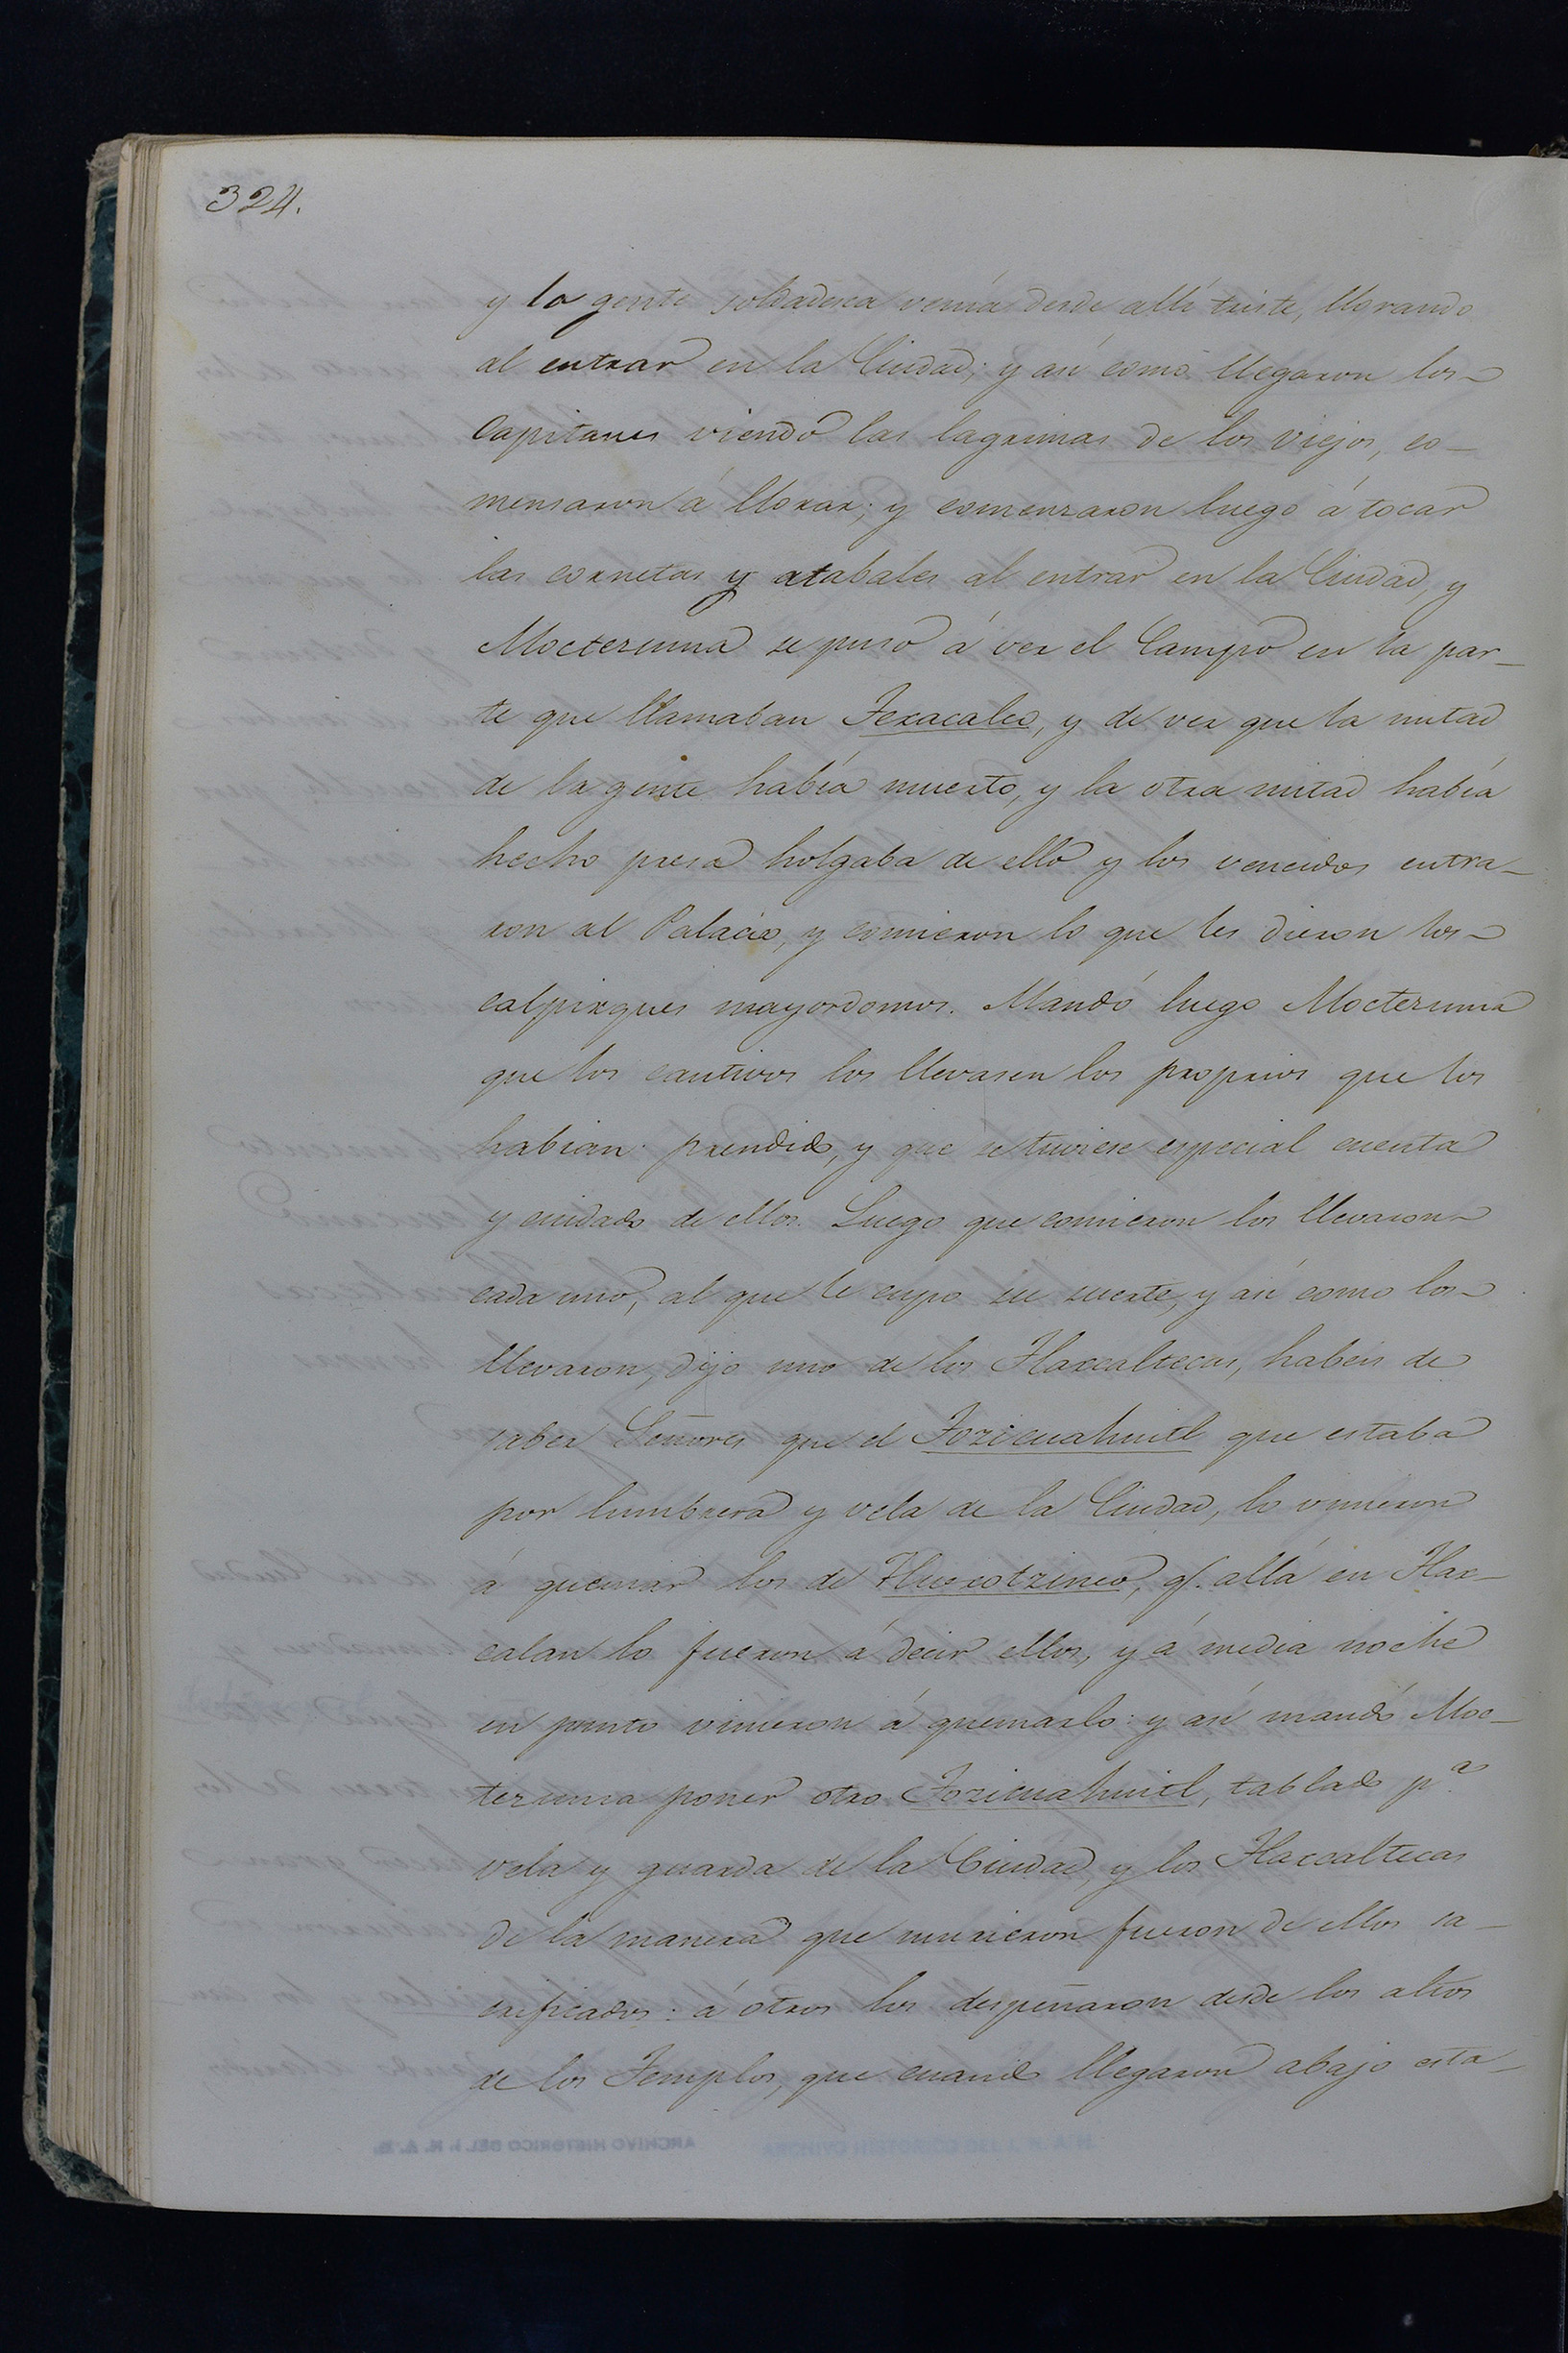 324.
y la gente soldadesca venía desde allí triste, llorando
al entrar en la Ciudad; y así como llegaron los
Capitanes viendo las lagrimas de los viejos, co-
mensaron á llorar; y comenzaron luego á tocar
las cornetas y atabales al entrar en la Ciudad, y
Moctezuma se puso á ver el Campo en la par-
te que llamaban Tezacalco, y de ver que la mitad
de la gente había muerto, y la otra mitad había
hecho presa holgaba de ello y los vencidos entra-
ron al Palacio, y comieron lo que les dieron los
calpixques mayordomos. Mandó luego Moctezuma
que los cautivos los llevasen los proprios que los
habian prendido, y que se tuviese especial cuenta
y cuidado de ellos. Luego que comieron los llevaron
cada uno, al que le cupo su suerte, y así como los
llevaron, dijo uno de los Tlaxcaltecas, habeis de
saber Señores que el Tozicuahuitl que estaba
por lumbrera y vela de la Ciudad, lo vinieron
á quemar los de Huexotzinco, q. allá en Tlax-
calan lo fueron á decir ellos, y á media noche
en punto vinieron á quemarlo: y así mandó Moc-
tezuma poner otro Tozicuahuitl, tablado pª
vela y guarda de la Ciudad, y los Tlaxcaltecas
de la manera que murieron fueron de ellos sa-
crificados: á otros los despeñaron desde los altos
de los Templos, que cuando llegaron abajo esta-
ARCHIVO HISTORICO DEL I. N. A. H.
ARCHIVO HISTORICO DEL I. N. A. H.